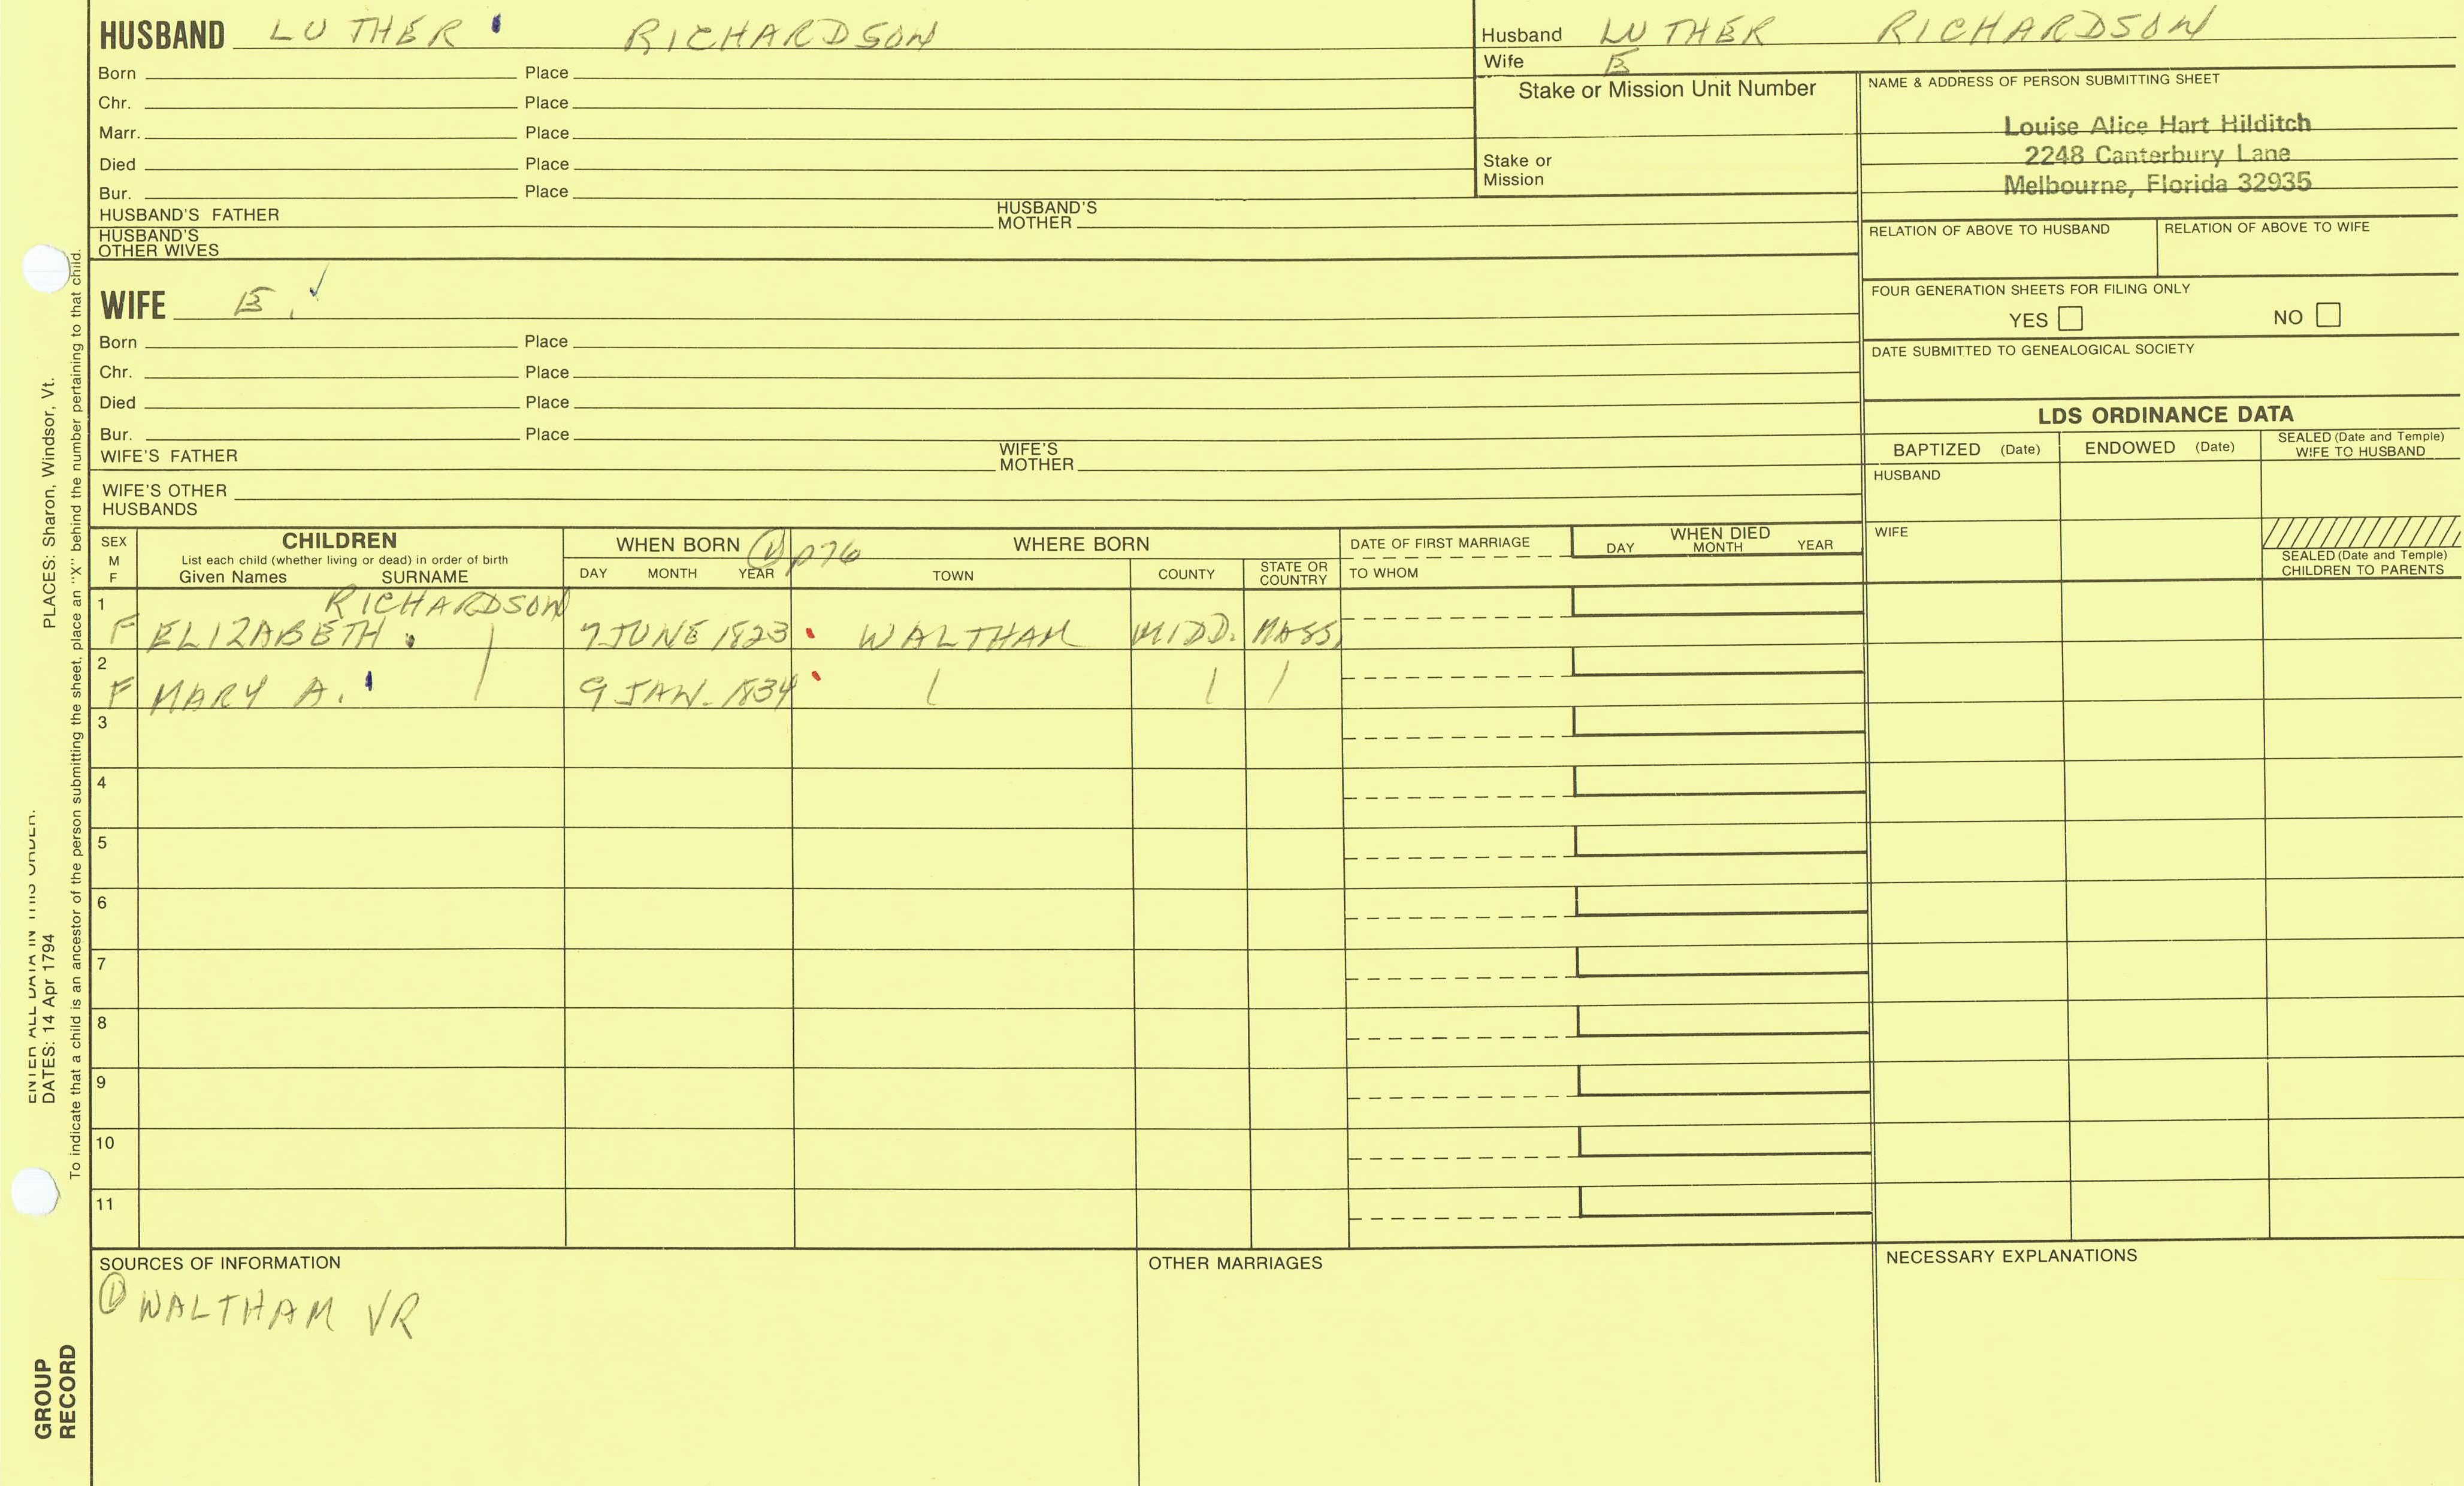 HUSBAND LUTHER RICHARDSON
Born Place
Chr. Place
Marr. Place
Died Place
Bur. Place
HUSBAND'S FATHER HUSBAND'S MOTHER
HUSBAND'S OTHER WIVES
WIFE E.
Born Place
Chr. Place
Died Place
Bur. Place
WIFE'S FATHER WIFE'S MOTHER
WIFE'S OTHER HUSBANDS
Husband LUTHER RICHARDSON
Wife E
Stake or Mission Unit Number
Stake or Mission
NAME & ADDRESS OF PERSON SUBMITTING SHEET
Louise Alice Hart Hilditch
2248 Canterbury Lane
Melbourne, Florida 32935
RELATION OF ABOVE TO HUSBAND RELATION OF ABOVE TO WIFE
FOUR GENERATION SHEETS FOR FILING ONLY
YES NO
DATE SUBMITTED TO GENEALOGICAL SOCIETY
LDS ORDINANCE DATA
BAPTIZED (Date) ENDOWED (Date) SEALED (Date and Temple) WIFE TO HUSBAND
HUSBAND
WIFE
SEALED (Date and Temple) CHILDREN TO PARENTS
SEX M F
CHILDREN
List each child (whether living or dead) in order of birth
Given Names SURNAME
WHEN BORN ① p76
DAY MONTH YEAR
WHERE BORN
TOWN COUNTY STATE OR COUNTRY
DATE OF FIRST MARRIAGE
TO WHOM
WHEN DIED
DAY MONTH YEAR
1 RICHARDSON
F ELIZABETH 7 JUNE 1823 WALTHAM MIDD. MASS.
2
F MARY A. 9 JAN. 1834
3
4
5
6
7
8
9
10
11
SOURCES OF INFORMATION
① WALTHAM VR
OTHER MARRIAGES
NECESSARY EXPLANATIONS
ENTER ALL DATA IN THIS ORDER.
DATES: 14 Apr 1794 PLACES: Sharon, Windsor, Vt.
To indicate that a child is an ancestor of the person submitting the sheet, place an "X" behind the number pertaining to that child.
GROUP
RECORD